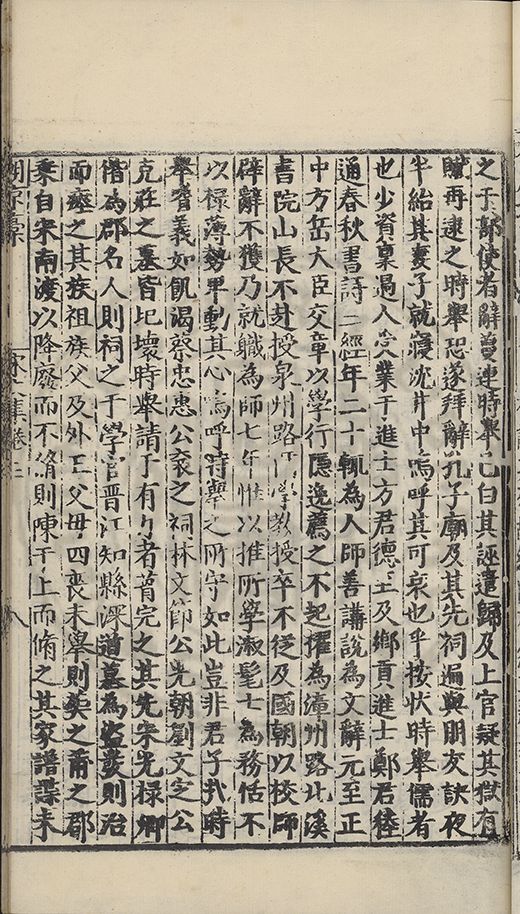 之于部使者辭曼連時舉已白其誣遣歸及上官疑其獄有
賕再逮之時舉恐遂拜辭孔子廟及其先祠遍與朋友訣夜
半紿其妻子就寢沈井中嗚呼其可哀也乎按狀時舉儒者
也少資稟過人受業于進士方君德至及鄉貢進士鄭君稑
通春秋書詩三經年二十輒為人師善講說為文辭元至正
中方岳大臣交章以學行隱逸薦之不起擢為漳州路北溪
書院山長不赴授泉州路儒學教授卒不從及國朝以校師
辟辭不獲乃就職為師七年惟以推所學淑髦士為務恬不
以祿薄勢卑動其心嗚呼時舉之所守如此豈非君子哉時
舉嗜義如飢渴蔡忠惠公襄之祠林文節公先朝劉文定公
克莊之墓皆圮壞時舉請于有力者葺完之其先宋光祿卿
偕為郡名人則祠之于學官晋江知縣深道墓為盜發則治
而瘞之其族祖族父及外王父母四喪未舉則葬之莆之郡
乘自宋南渡以降廢而不脩則陳于上而脩之其家譜諜未